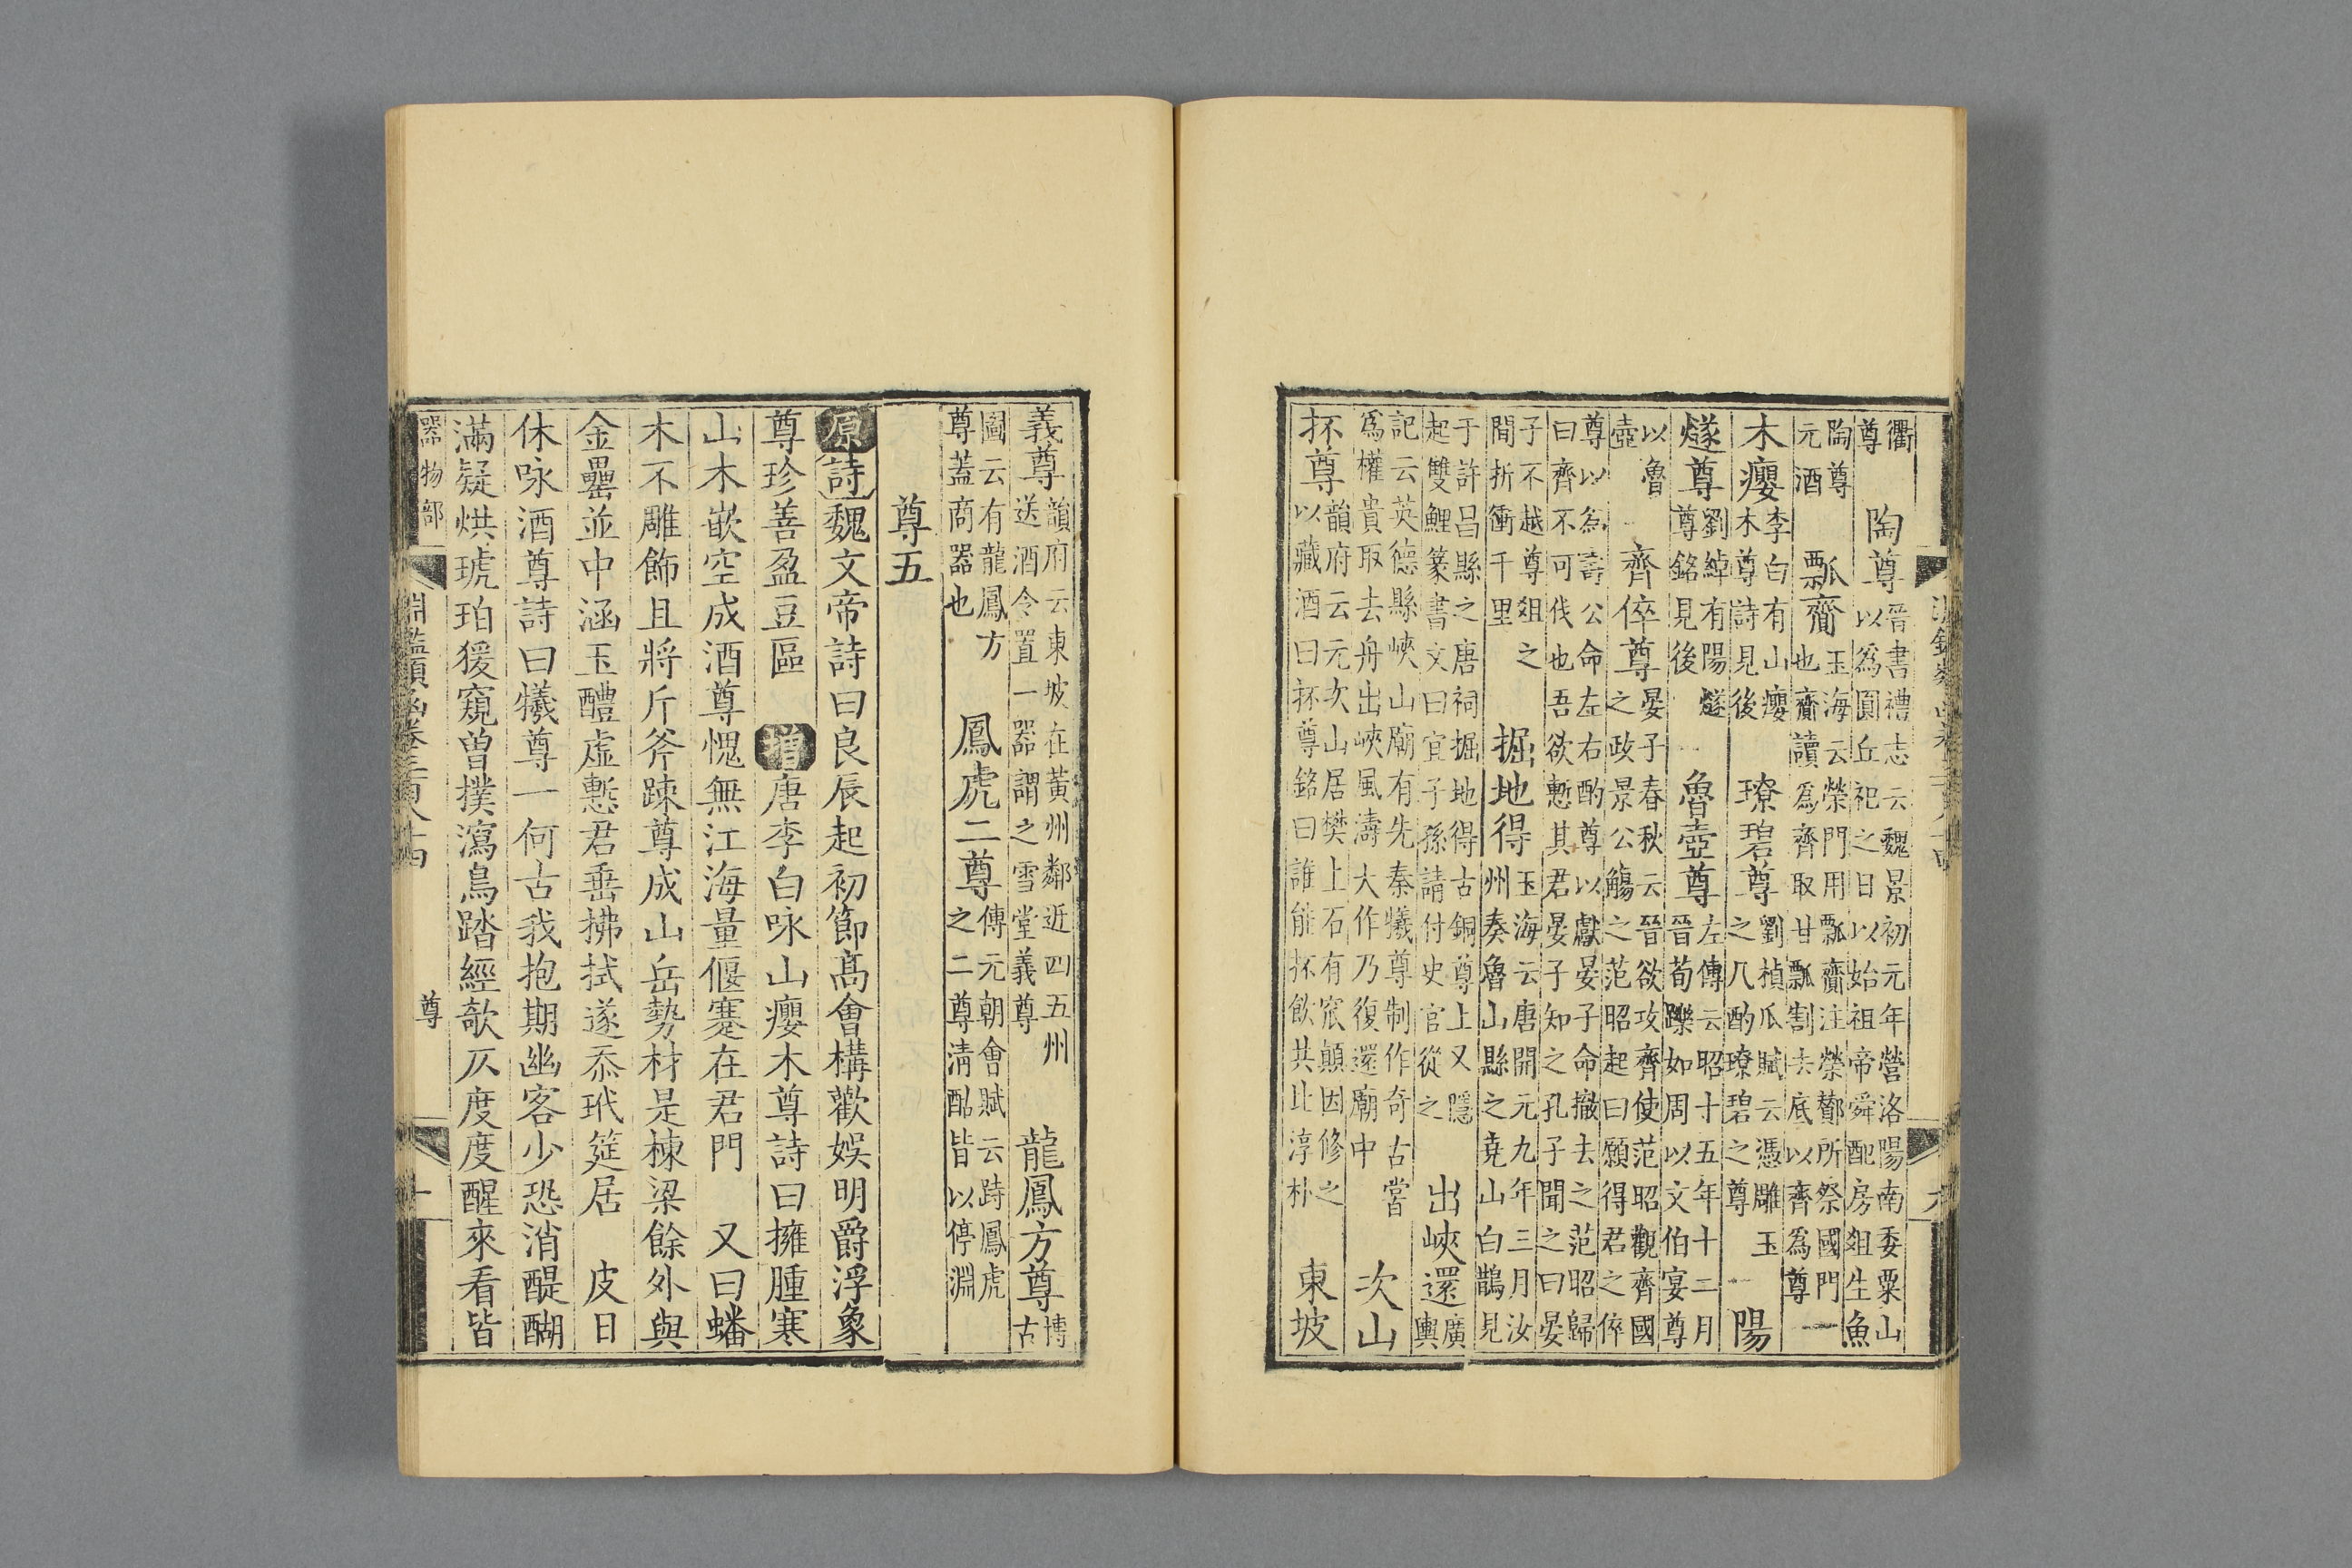 衢尊　陶尊晋書禮志云魏景初元年營洛陽南委粟山以爲圓丘祀之日以始祖帝舜配房俎生魚
陶尊元酒　瓢齎玉海云禜門用瓢齎注禜酇所祭國門也齎讀爲齊取甘瓢割去底以齊爲尊
木癭李白有山癭木尊詩見後　璙碧尊劉楨瓜賦云憑雕玉之八酌璙碧之尊　陽
燧尊劉綽有陽燧尊銘見後　魯壺尊左傳云昭十五年十二月晉荀躒如周以文伯宴尊
以魯壺　齊倅尊晏子春秋云晉欲攻齊使范昭觀齊國之政景公觴之范昭起曰願得君之倅
尊以爲壽公命左右酌尊以獻晏子命撤去之范昭歸曰齊不可伐也吾欲慙其君晏子知之孔子聞之曰晏
子不越尊俎之間折衝千里　掘地得玉海云唐開元九年三月汝州奏魯山縣之堯山白鵲見
于許呂縣之唐祠掘地得古銅尊上又隱起雙鯉篆書文曰宜子孫請付史官從之　出峽還廣輿
記云英德縣峽山廟有先秦犧尊制作奇古嘗爲權貴取去舟出峽風濤大作乃復還廟中　次山
抔尊韻府云元次山居樊上石有窊顛因修之以藏酒曰抔尊銘曰誰能抔飲共此淳朴　東坡
義尊韻府云東坡在黃州鄰近四五州送酒令置一器謂之雪堂義尊　龍鳳方尊博古
圖云有龍鳳方尊蓋商器也　鳳虎二尊傳元朝會賦云跱鳳虎之二尊清酤皆以停淵
尊五
原詩魏文帝詩曰良辰起初節高會構歡娛明爵浮象
尊珍善盈豆區　增唐李白咏山癭木尊詩曰擁腫寒
山木嵌空成酒尊愧無江海量偃蹇在君門　又曰蟠
木不雕飾且將斤斧踈尊成山岳勢材是棟梁餘外與
金罍並中涵玉醴虛慙君垂拂拭遂忝玳筵居　皮日
休咏酒尊詩曰犧尊一何古我抱期幽客少恐消醍醐
滿疑烘琥珀猨窺曾撲瀉鳥踏經欹仄度度醒來看皆
器物部　淵鑑類函卷三百八十四　尊　十